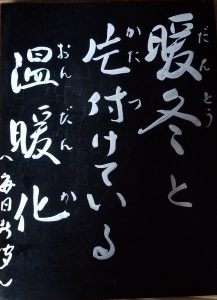 暖冬と
だんとう
片付けている
かたつ
温暖化
おんだんか
〜毎日新聞〜